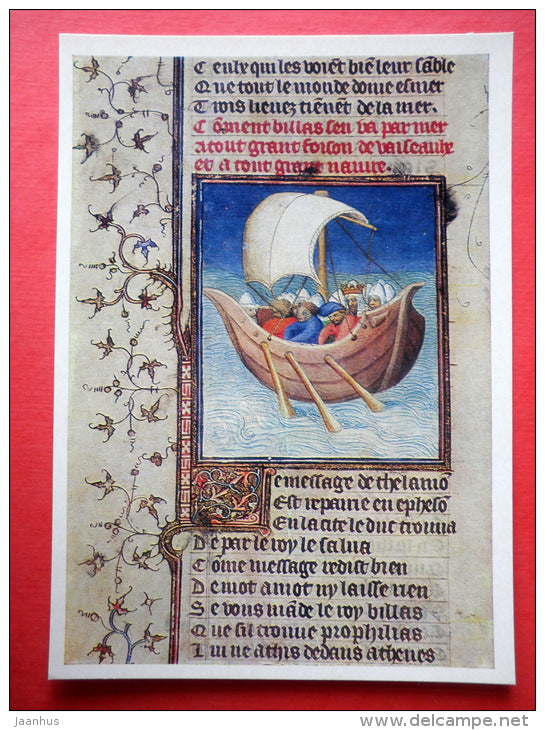 Ceulx qui les voient bien leur sable
Que tout le monde doive esmer
Trois lieuez tienent de la mer.
Coment billas sen va par mer
a tout grant foison de vaiseaulx
et a tout grant navire.
Le message de thelamo
Est repaire en epheso
En la cite le duc trouva
De par le roy le salua
Come message redist bien
De mot a mot ny laisse rien
Se vous mande le roy billas
Que sil trouve prophilias
Lui ne athis dedans athenes
jaanhus
www.delcampe.net